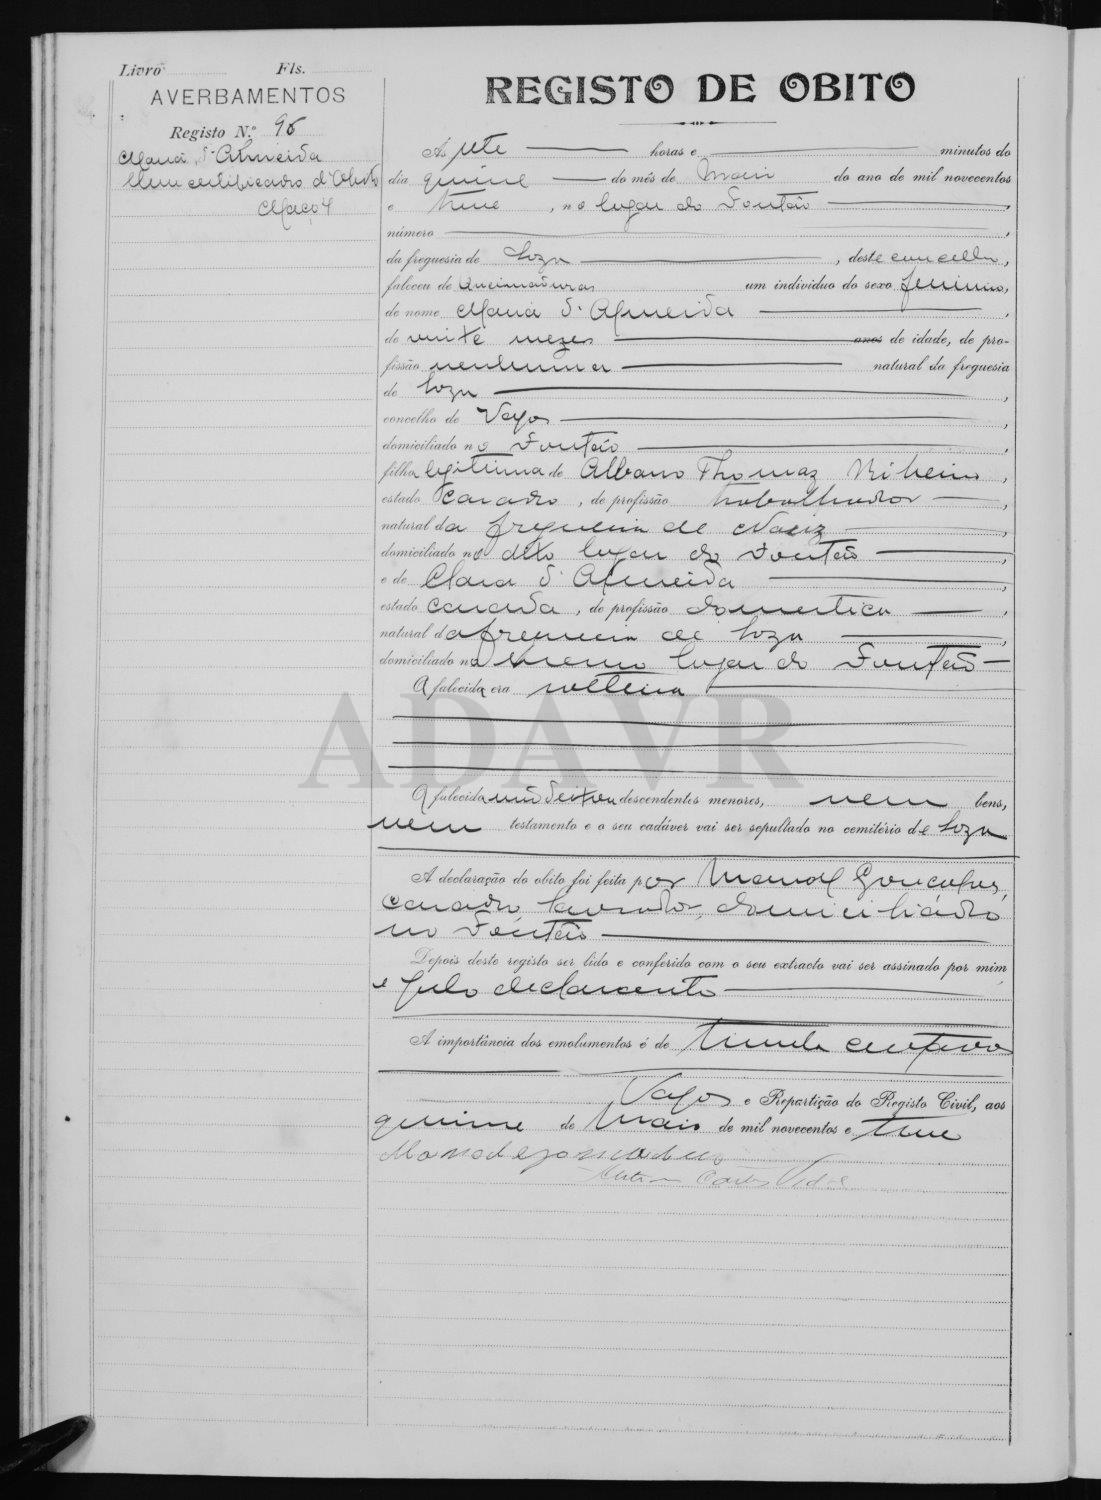 Livro Fls.
AVERBAMENTOS
Registo N.º 96
Maria d'Almeida
Um certificado d'Obito
Maço 4
REGISTO DE OBITO
Ás sete horas e minutos do
dia quinze do mês de Maio do ano de mil novecentos
e treze, no lugar do Fontão,
número,
da freguesia de Soza, deste concelho,
faleceu de queimaduras um individuo do sexo feminino,
de nome Maria d'Almeida,
de vinte mezes anos de idade, de pro-
fissão nenhuma natural da freguesia
de Soza,
concelho de Vagos,
domiciliado no Fontão,
filha legitima de Albano Thomaz Ribeiro,
estado casado, de profissão trabalhador,
natural da freguesia de Nariz,
domiciliado no dito lugar do Fontão,
e de Clara d'Almeida,
estado casada, de profissão domestica,
natural da freguesia de Soza,
domiciliado no mesmo lugar do Fontão
A falecida era solteira
ADAVR
A falecida não deixou descendentes menores, nem bens,
nem testamento e o seu cadáver vai ser sepultado no cemitério de Soza
A declaração do obito foi feita por Manoel Gonçalves,
casado, lavrador, domiciliado
no Fontão
Depois deste registo ser lido e conferido com o seu extracto vai ser assinado por mim
e pelo declarante
A importância dos emolumentos é de trinta centavos
Vagos e Repartição do Registo Civil, aos
quinze de Maio de mil novecentos e treze
Manoel Gonsalves
Vidal